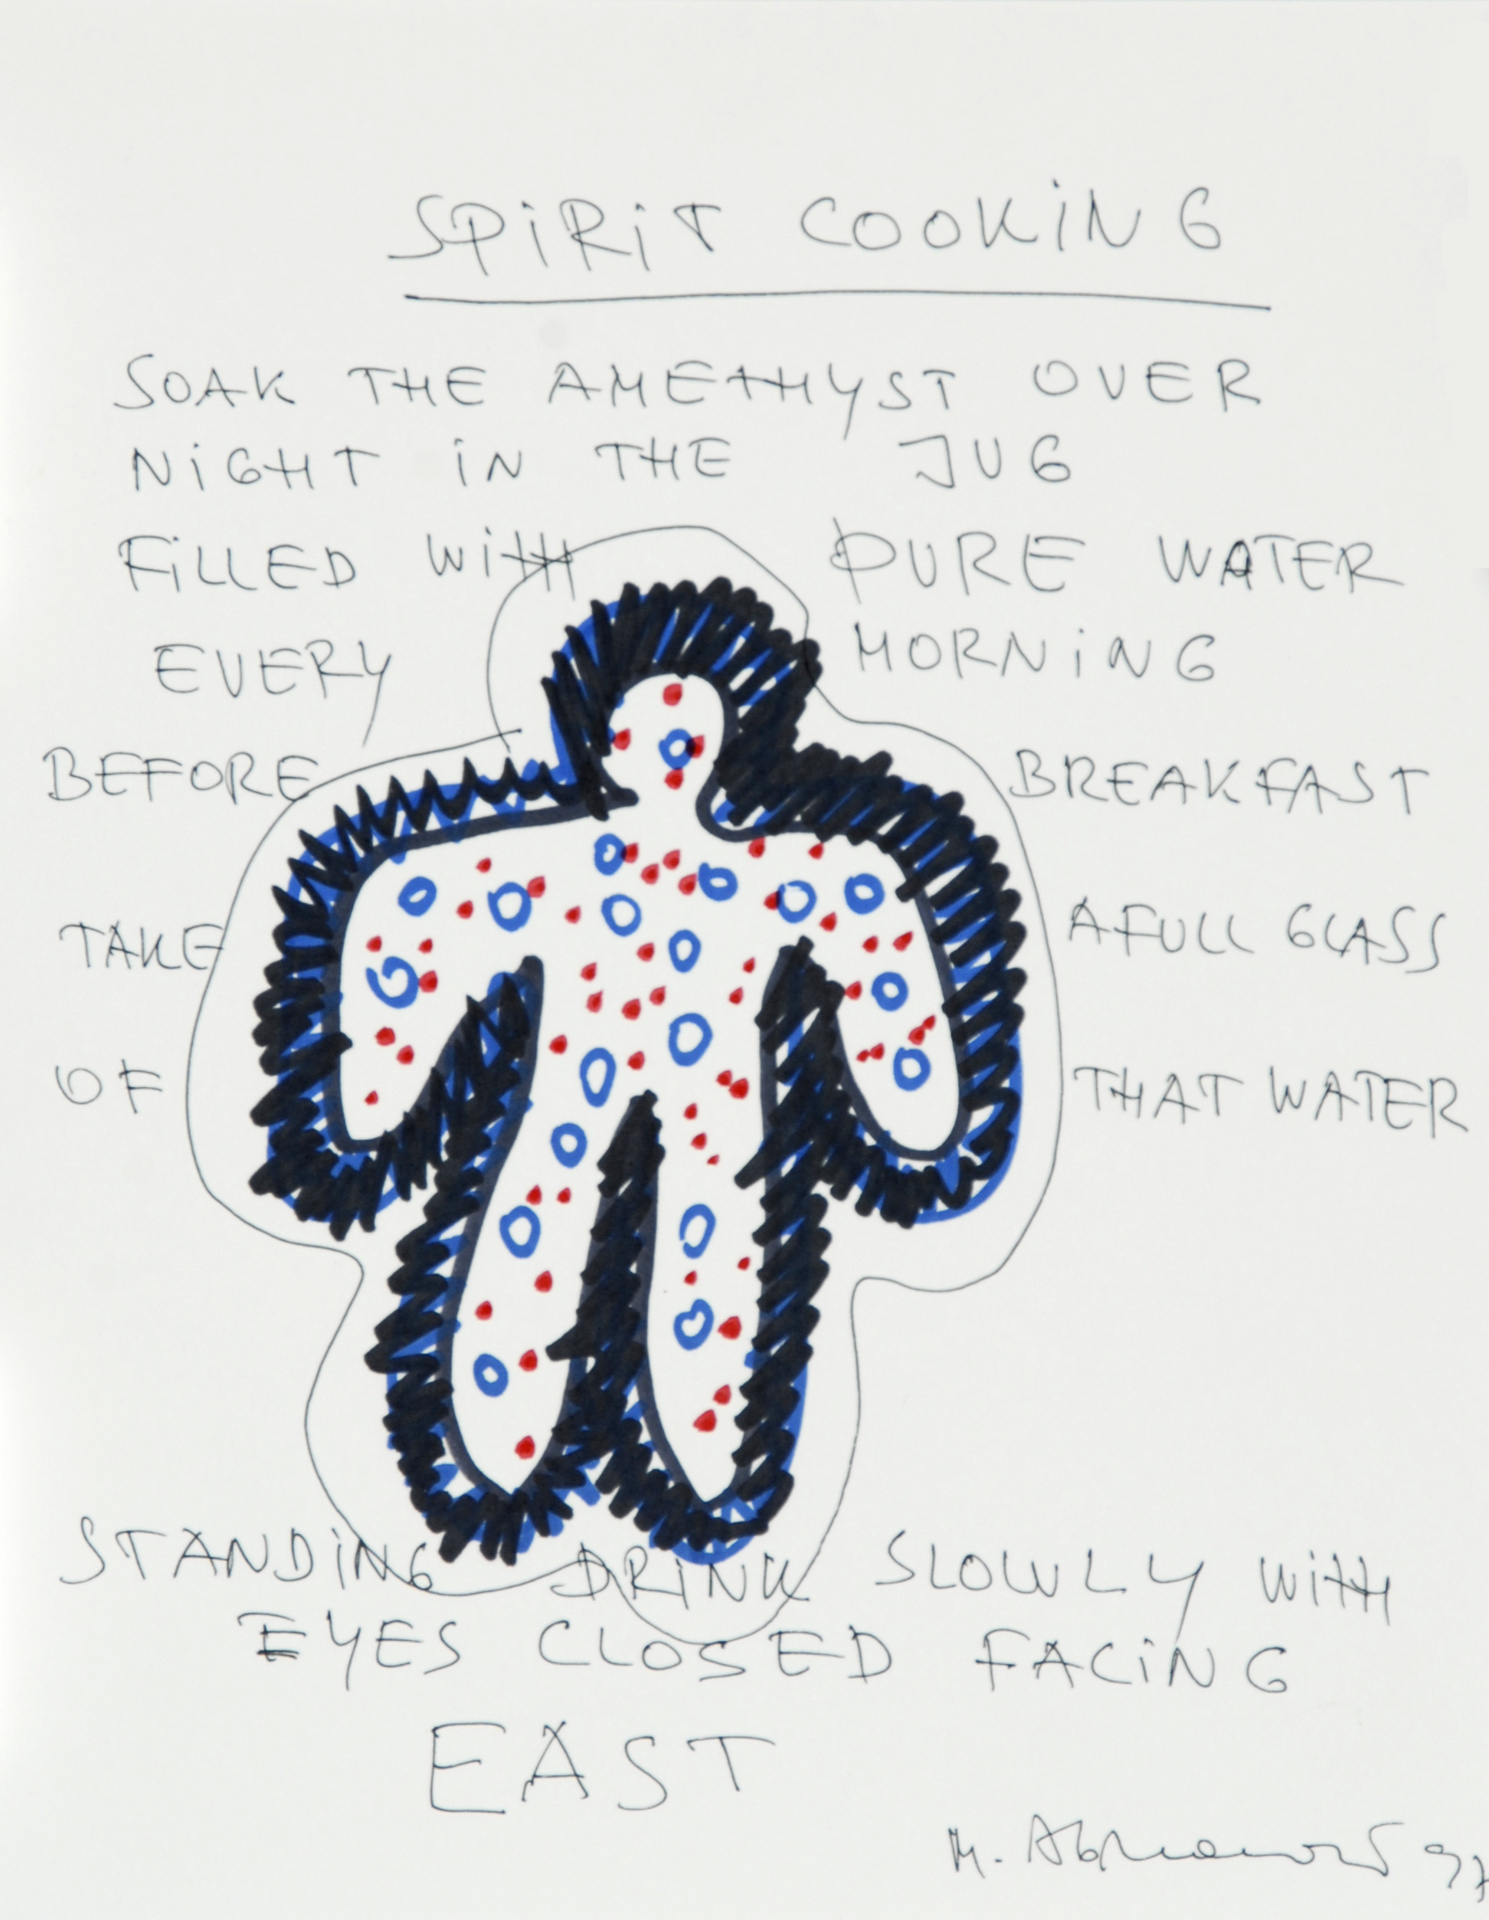 SPiRiT COOKiNG
SOAK THE AMETHYST OVER
NiGHT iN THE JUG
FiLLED WiTH PURE WATER
EVERY MORNiNG
BEFORE BREAKFAST
TAKE A FULL GLASS
OF THAT WATER
STANDiNG DRiNK SLOWLY WiTH
EYES CLOSED FACiNG
EAST
M. Abramović 97